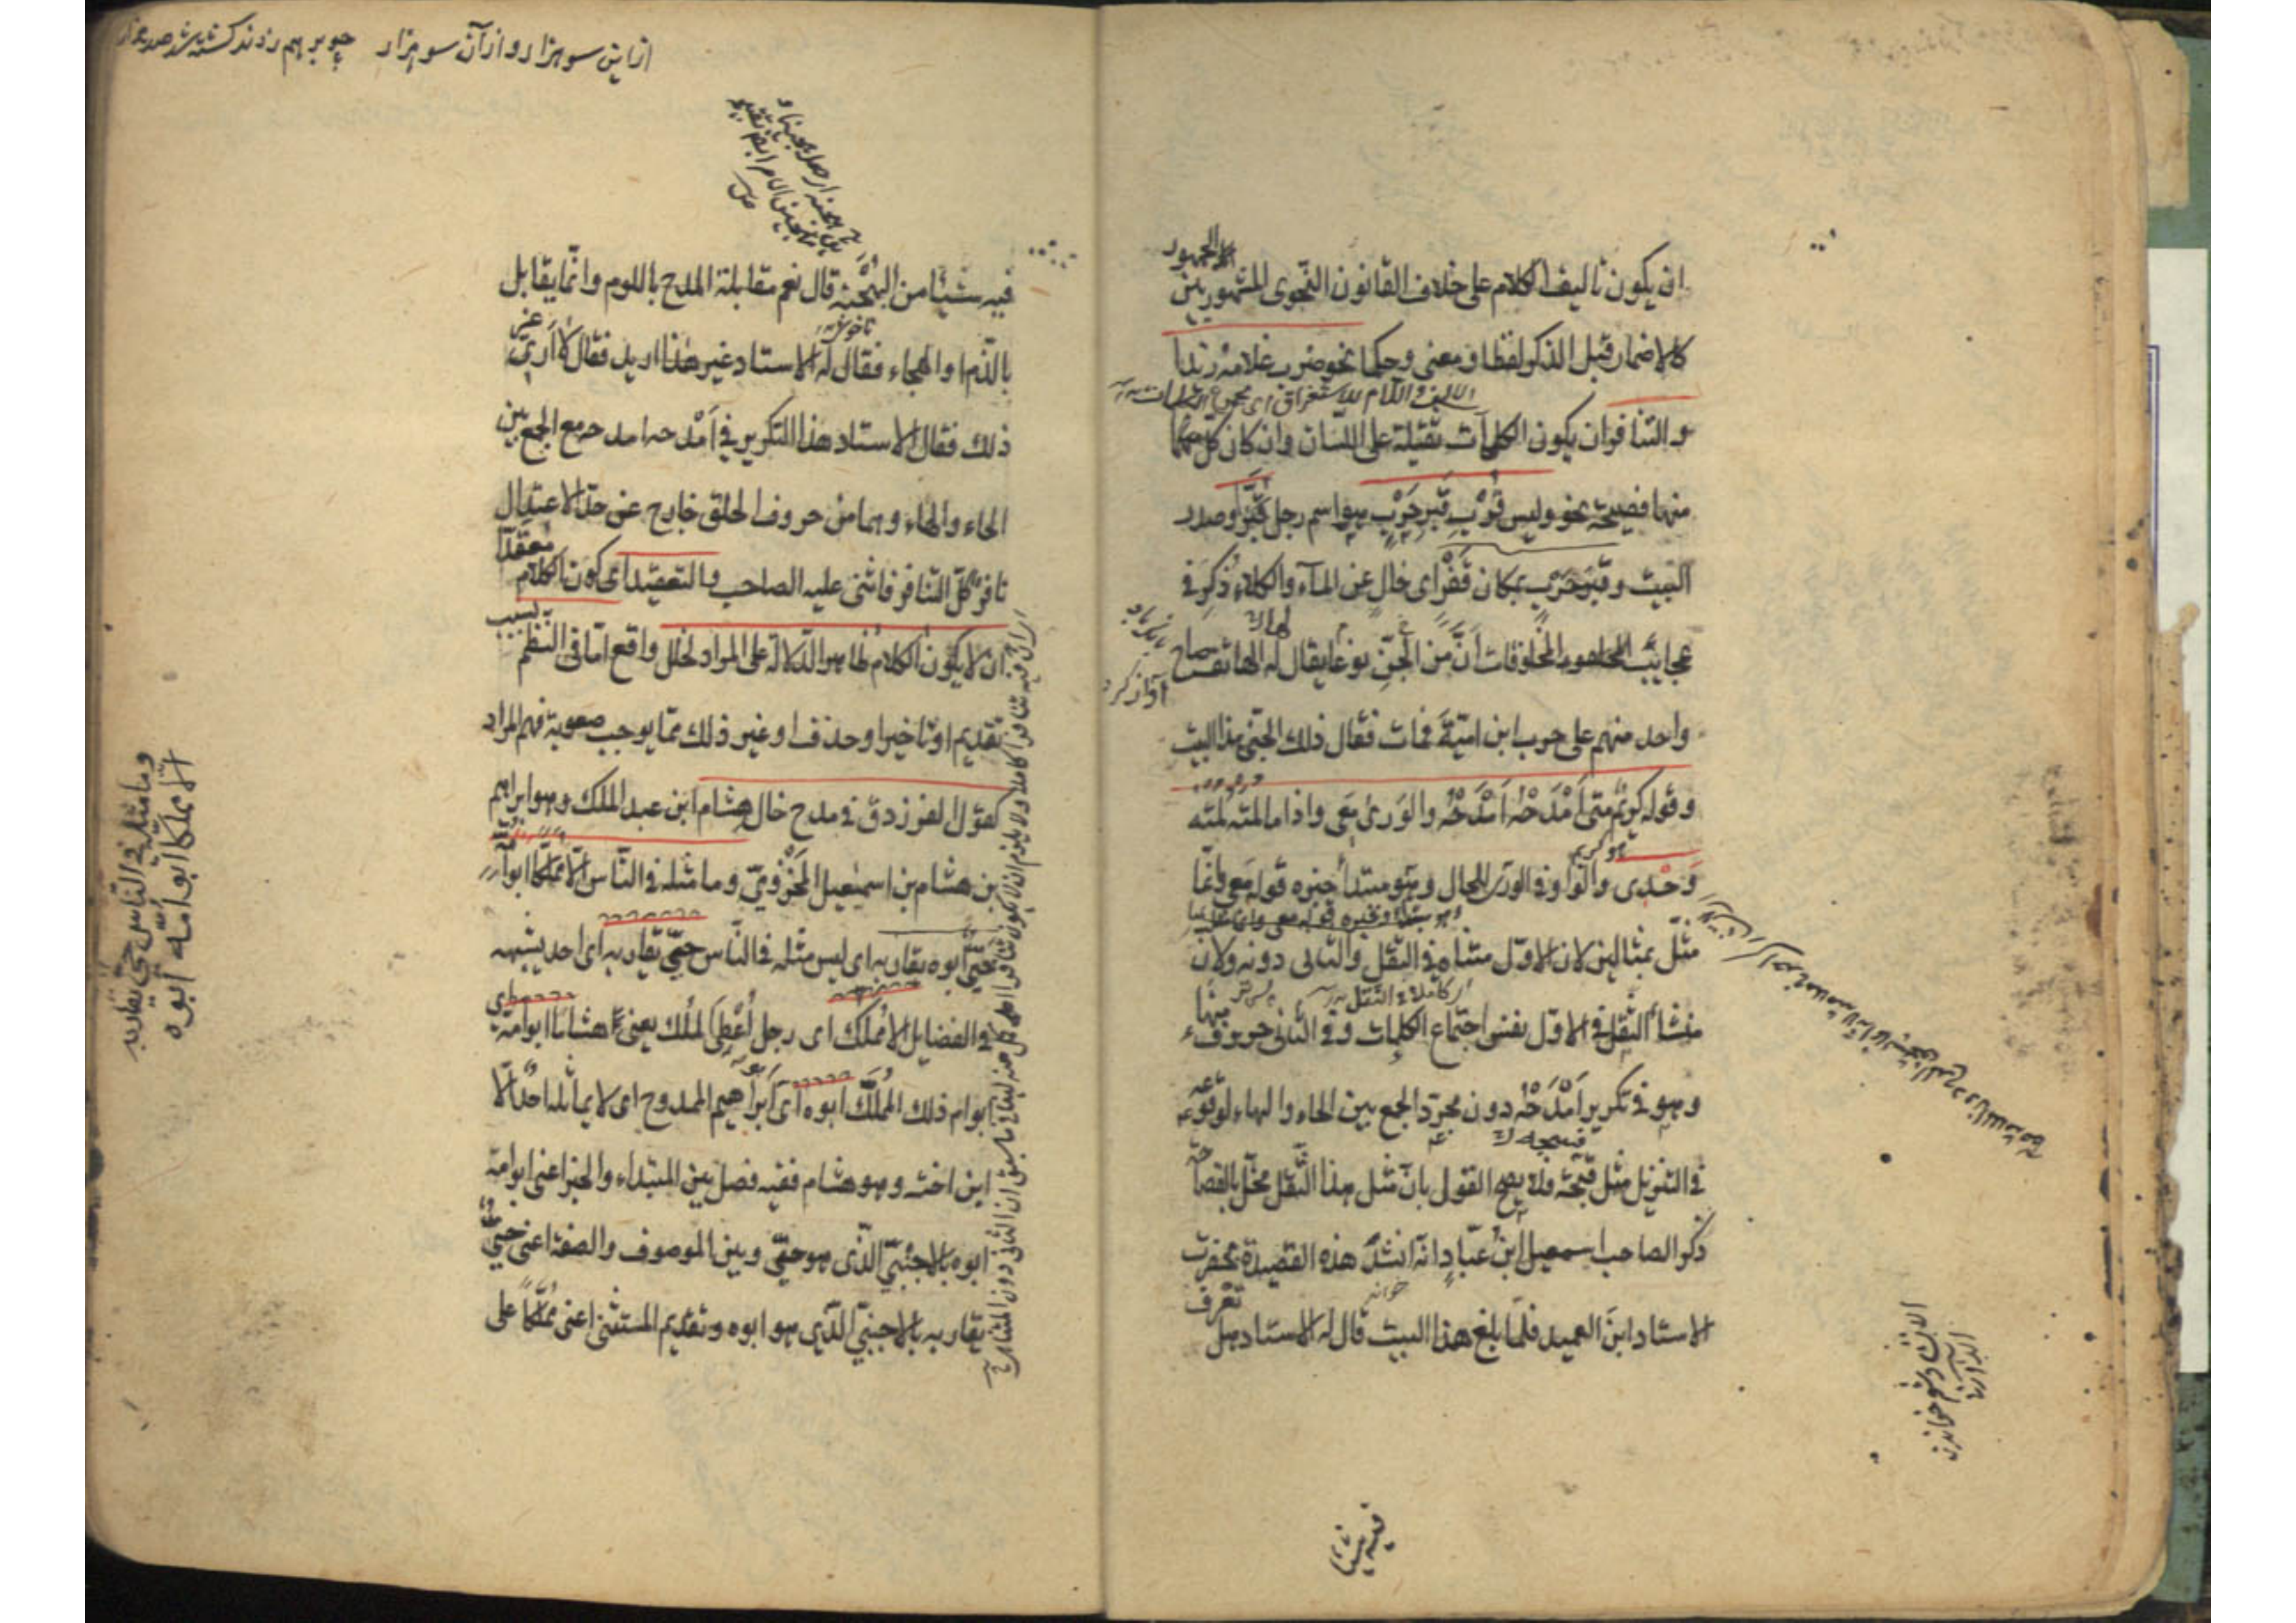 ان يكون تاليف الكلام على خلاف القانون النحوى المشهور بين
الجمهور
كالاضمار قبل الذكر لفظا و معنى وحكما نحو ضرب غلامه زيدا
الالف و اللام للاستغراق اى مجموع الكلمات
و التنافر ان يكون الكلمات ثقيلة على اللسان وان كان كل
منها فصيحة نحو وليس قُرْبِ قَبْرِ حَرْبٍ هو اسم رجل قَبْرٌ وصدر
البيت وقبر حَرْبٍ بمكان قَفْر اى خال عن المآء والكلاء ذُكِرَ فى
عجايب المخلوقات اَنَّ من الجنّ نوعا يقال له الهاتف صاح
آواز كرد
واحد منهم على حرب ابن اميّة فمات فقال ذلك الجنّى هذا البيت
و قوله كريمٌ متى اَمْدَحْهُ اَمْدَحْهُ والوَرىٰ مَعى واذا ما لمته لمته
هو كريم
وَحْدى والواو فى الورى للحال وهو مبتدأ خبره قوله معى وانّما
مثّل بمثالين لان الاوّل متناه فى الثقل والثانى دونه ولانّ
اى كاملا فى الثقل
منشأ الثقل فى الاوّل نفس اجتماع الكلمات و فى الثانى حروف
منها
وهو فى تكرير اَمْدَحْهُ دون مجرّد الجمع بين الحاء والهاء لوقوعه
فى التنزيل مثل فسبّحه فلا يصح القول بانّ مثل هذا الثقل مخلّ بالفصاحة
ذكر الصاحب اسمعيل ابن عبّاد انّه انشد هذه القصيدة بحضرت
الاستاد ابن العميد فلمّا بلغ هذا البيت قال له الاستاد هل
تعرف
فيه شيئا
از اين سو هزار و از آن سو هزار چو بر هم زدند كشته شد صد هزار
فيه شيئا من الهُجْنة قال نعم مقابلة المدح باللوم وانّما يقابل
بالذّم او الهجاء فقال له الاستاد غير هذا اريد فقال لا اَرى غير
ذلك فقال الاستاد هذا التكرير فى اَمْدحه امدحه مع الجمع بين
الحاء والهاء وهما من حروف الحلق خارج عن حدّ الاعتدال
نافر كلّ التنافر فاثنى عليه الصاحب والتعقيد اى كون الكلام
معقّدا
ان لا يكون الكلام ظاهر الدّلالة على المراد لخلل واقع امّا فى النظم
بسبب
تقديم او تاخير او حذف او غير ذلك ممّا يوجب صعوبة فهم المراد
كقول الفرزدق فى مدح خال هشام ابن عبد الملك وهو ابراهيم
بن هشام بن اسمعيل المخزوميّ وما مثله فى النّاس الّا مملّكا ابو امّه
حىّ ابوه يقاربه اى ليس مثله فى النّاس حىّ يقاربه اى احد يشبهه
فى الفضايل الا مُملّك اى رجل اُعْطِىَ الملك يعنى هشاما ابو امّه اى
ابو امّ ذلك المُمَلَّك ابوه اى ابو ابراهيم الممدوح اى لا يماثله احد الّا
ابن اخته و هو هشام ففيه فصل بين المبتداء والخبر اعنى ابو امه
ابوه بالاجنبىّ الّذى هو حىّ و بين الموصوف والصفة اعنى حىّ
يقاربه بالاجنبىّ الّذى هو ابوه و تقديم المستثنى اعنى مملّكا على
وما مثله فى النّاس حىّ يقاربه
الّا مملّكا ابو امّه ابوه